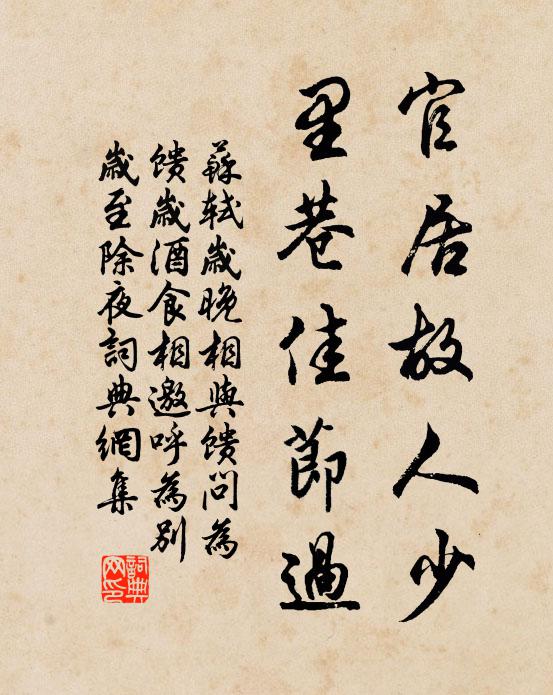 官居故人少
里巷佳節過
蘇軾歲晚相與馈問為
馈歲酒食相邀呼為別
歲至除夜詞典網集
詞典
网印